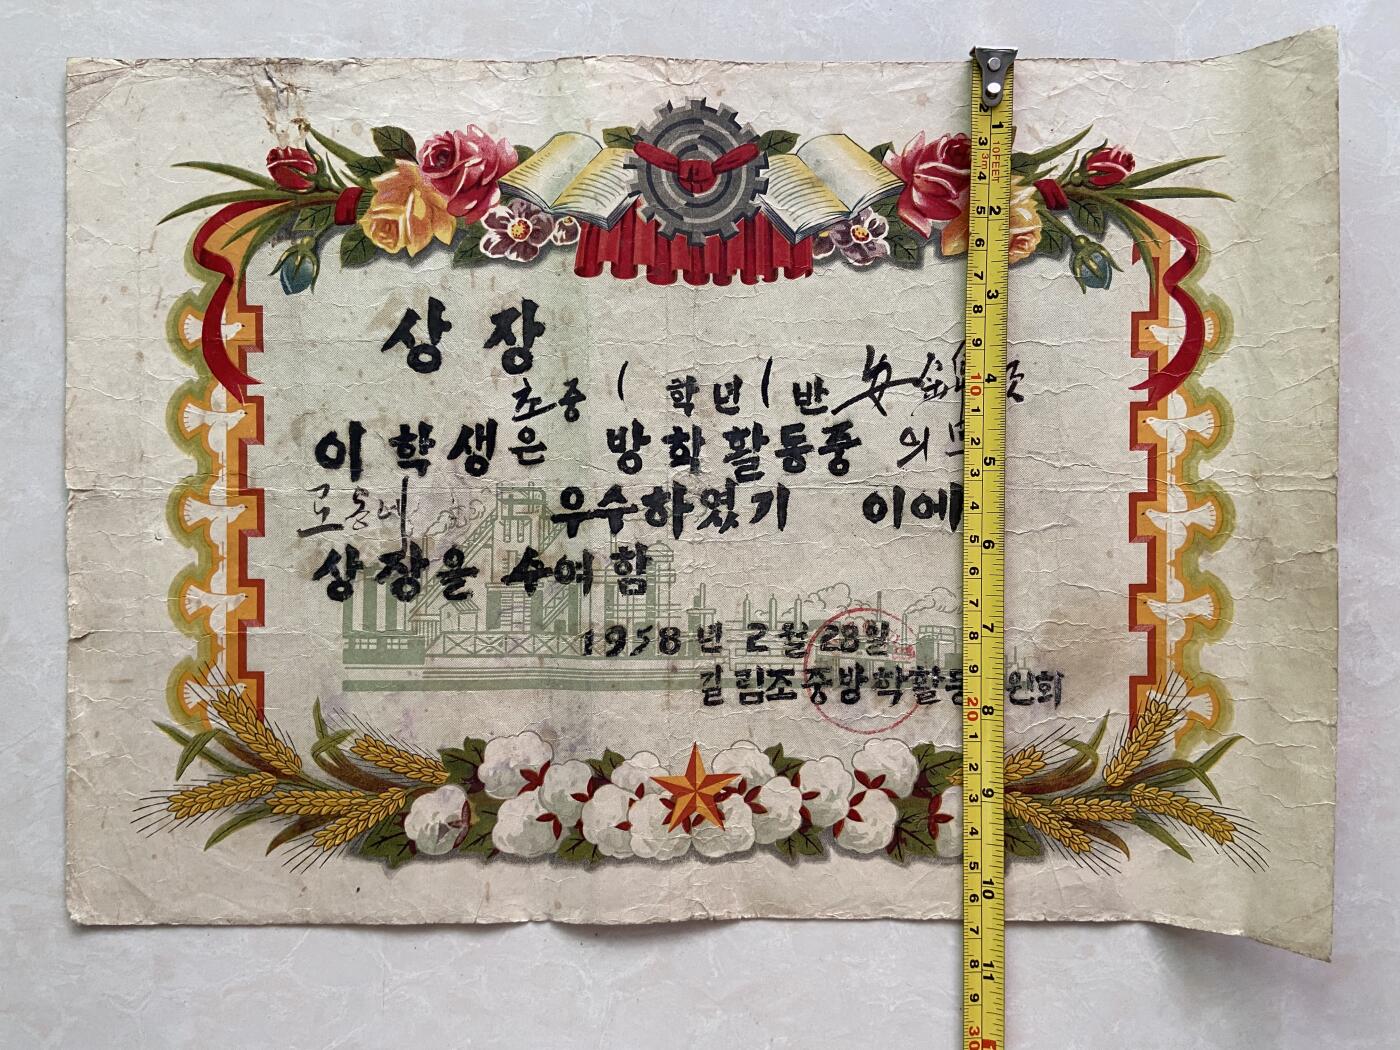 상장
초중 1 학년 1 반 安
이 학생은 방학활동중 의
로동에 우수하였기 이에
상장을 수여함
1958년 2월 28일
길림조중방학활동 원회
10FEET
3m